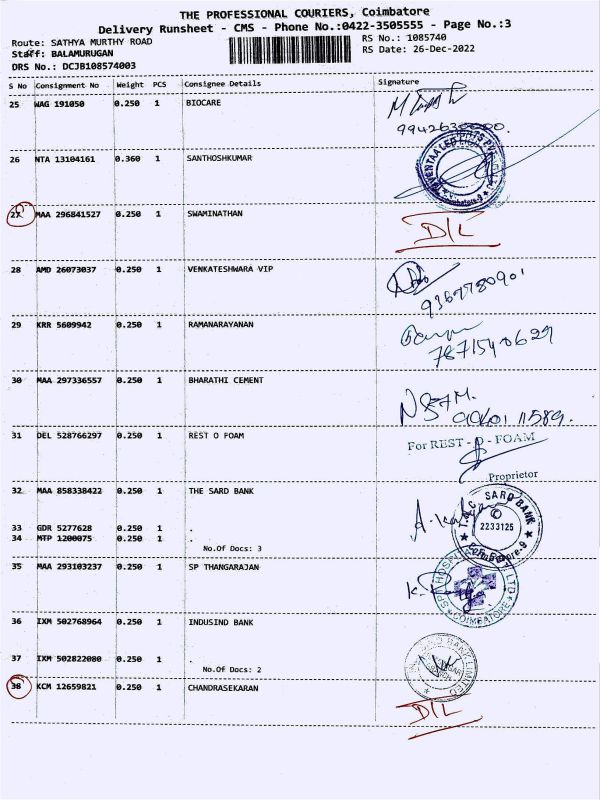 THE PROFESSIONAL COURIERS, Coimbatore
Delivery Runsheet - CMS - Phone No.:0422-3505555 - Page No.:3
Route: SATHYA MURTHY ROAD RS No.: 1085740
Staff: BALAMURUGAN RS Date: 26-Dec-2022
DRS No.: DCJB108574003
S No Consignment No Weight PCS Consignee Details Signature
25 WAG 191050 0.250 1 BIOCARE
26 NTA 13104161 0.360 1 SANTHOSHKUMAR
27 MAA 296841527 0.250 1 SWAMINATHAN D/L
28 AMD 26073037 0.250 1 VENKATESHWARA VIP
9367780901
29 KRR 5609942 0.250 1 RAMANARAYANAN
7871540629
30 MAA 297336557 0.250 1 BHARATHI CEMENT
31 DEL 528766297 0.250 1 REST O FOAM For REST - O - FOAM
Proprietor
32 MAA 858338422 0.250 1 THE SARD BANK
SARD BANK
2233125
33 GDR 5277628 0.250 1 .
34 MTP 1200075 0.250 1 .
No.Of Docs: 3
35 MAA 293103237 0.250 1 SP THANGARAJAN
COIMBATORE
36 IXM 502768964 0.250 1 INDUSIND BANK
37 IXM 502822080 0.250 1 .
No.Of Docs: 2
38 KCM 12659821 0.250 1 CHANDRASEKARAN D/L